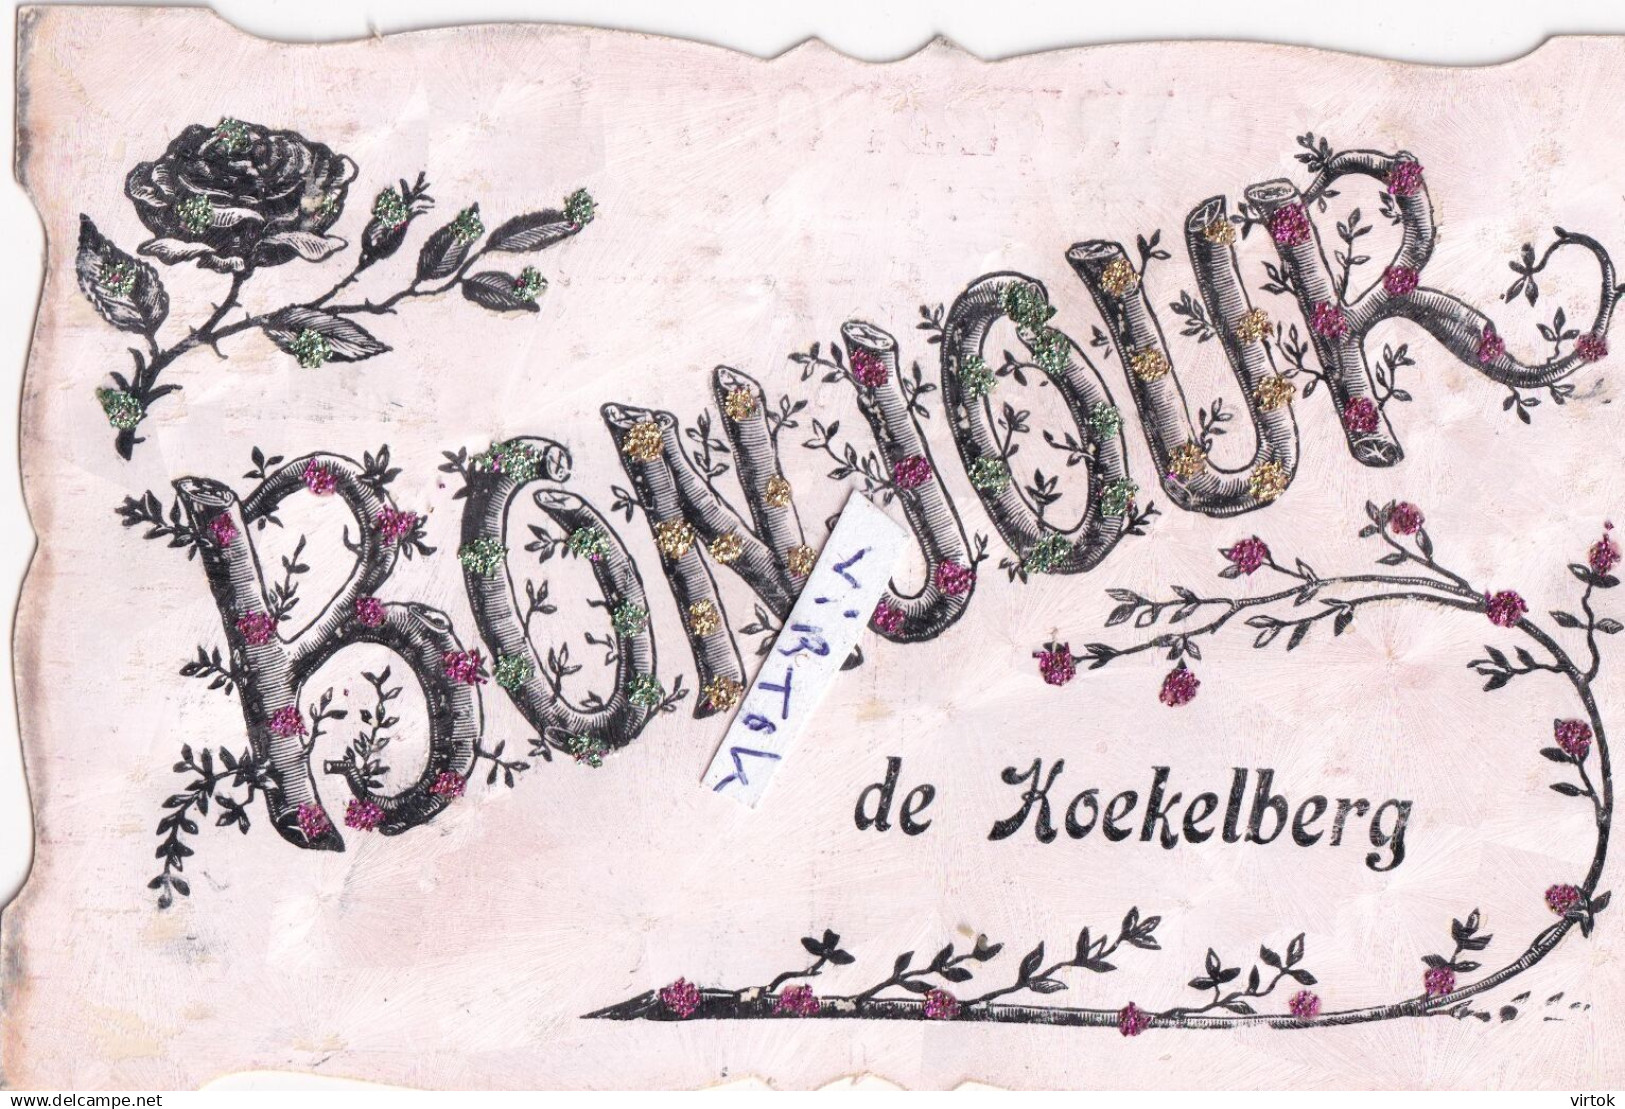 BONJOUR
ViRToK
de Koekelberg
delcampe.net
virtok